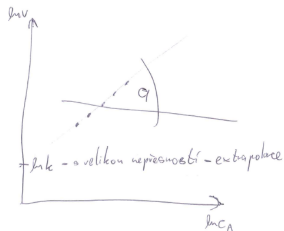 ln v
α
ln k - s velikou nepřesností - extrapolace
ln c_A